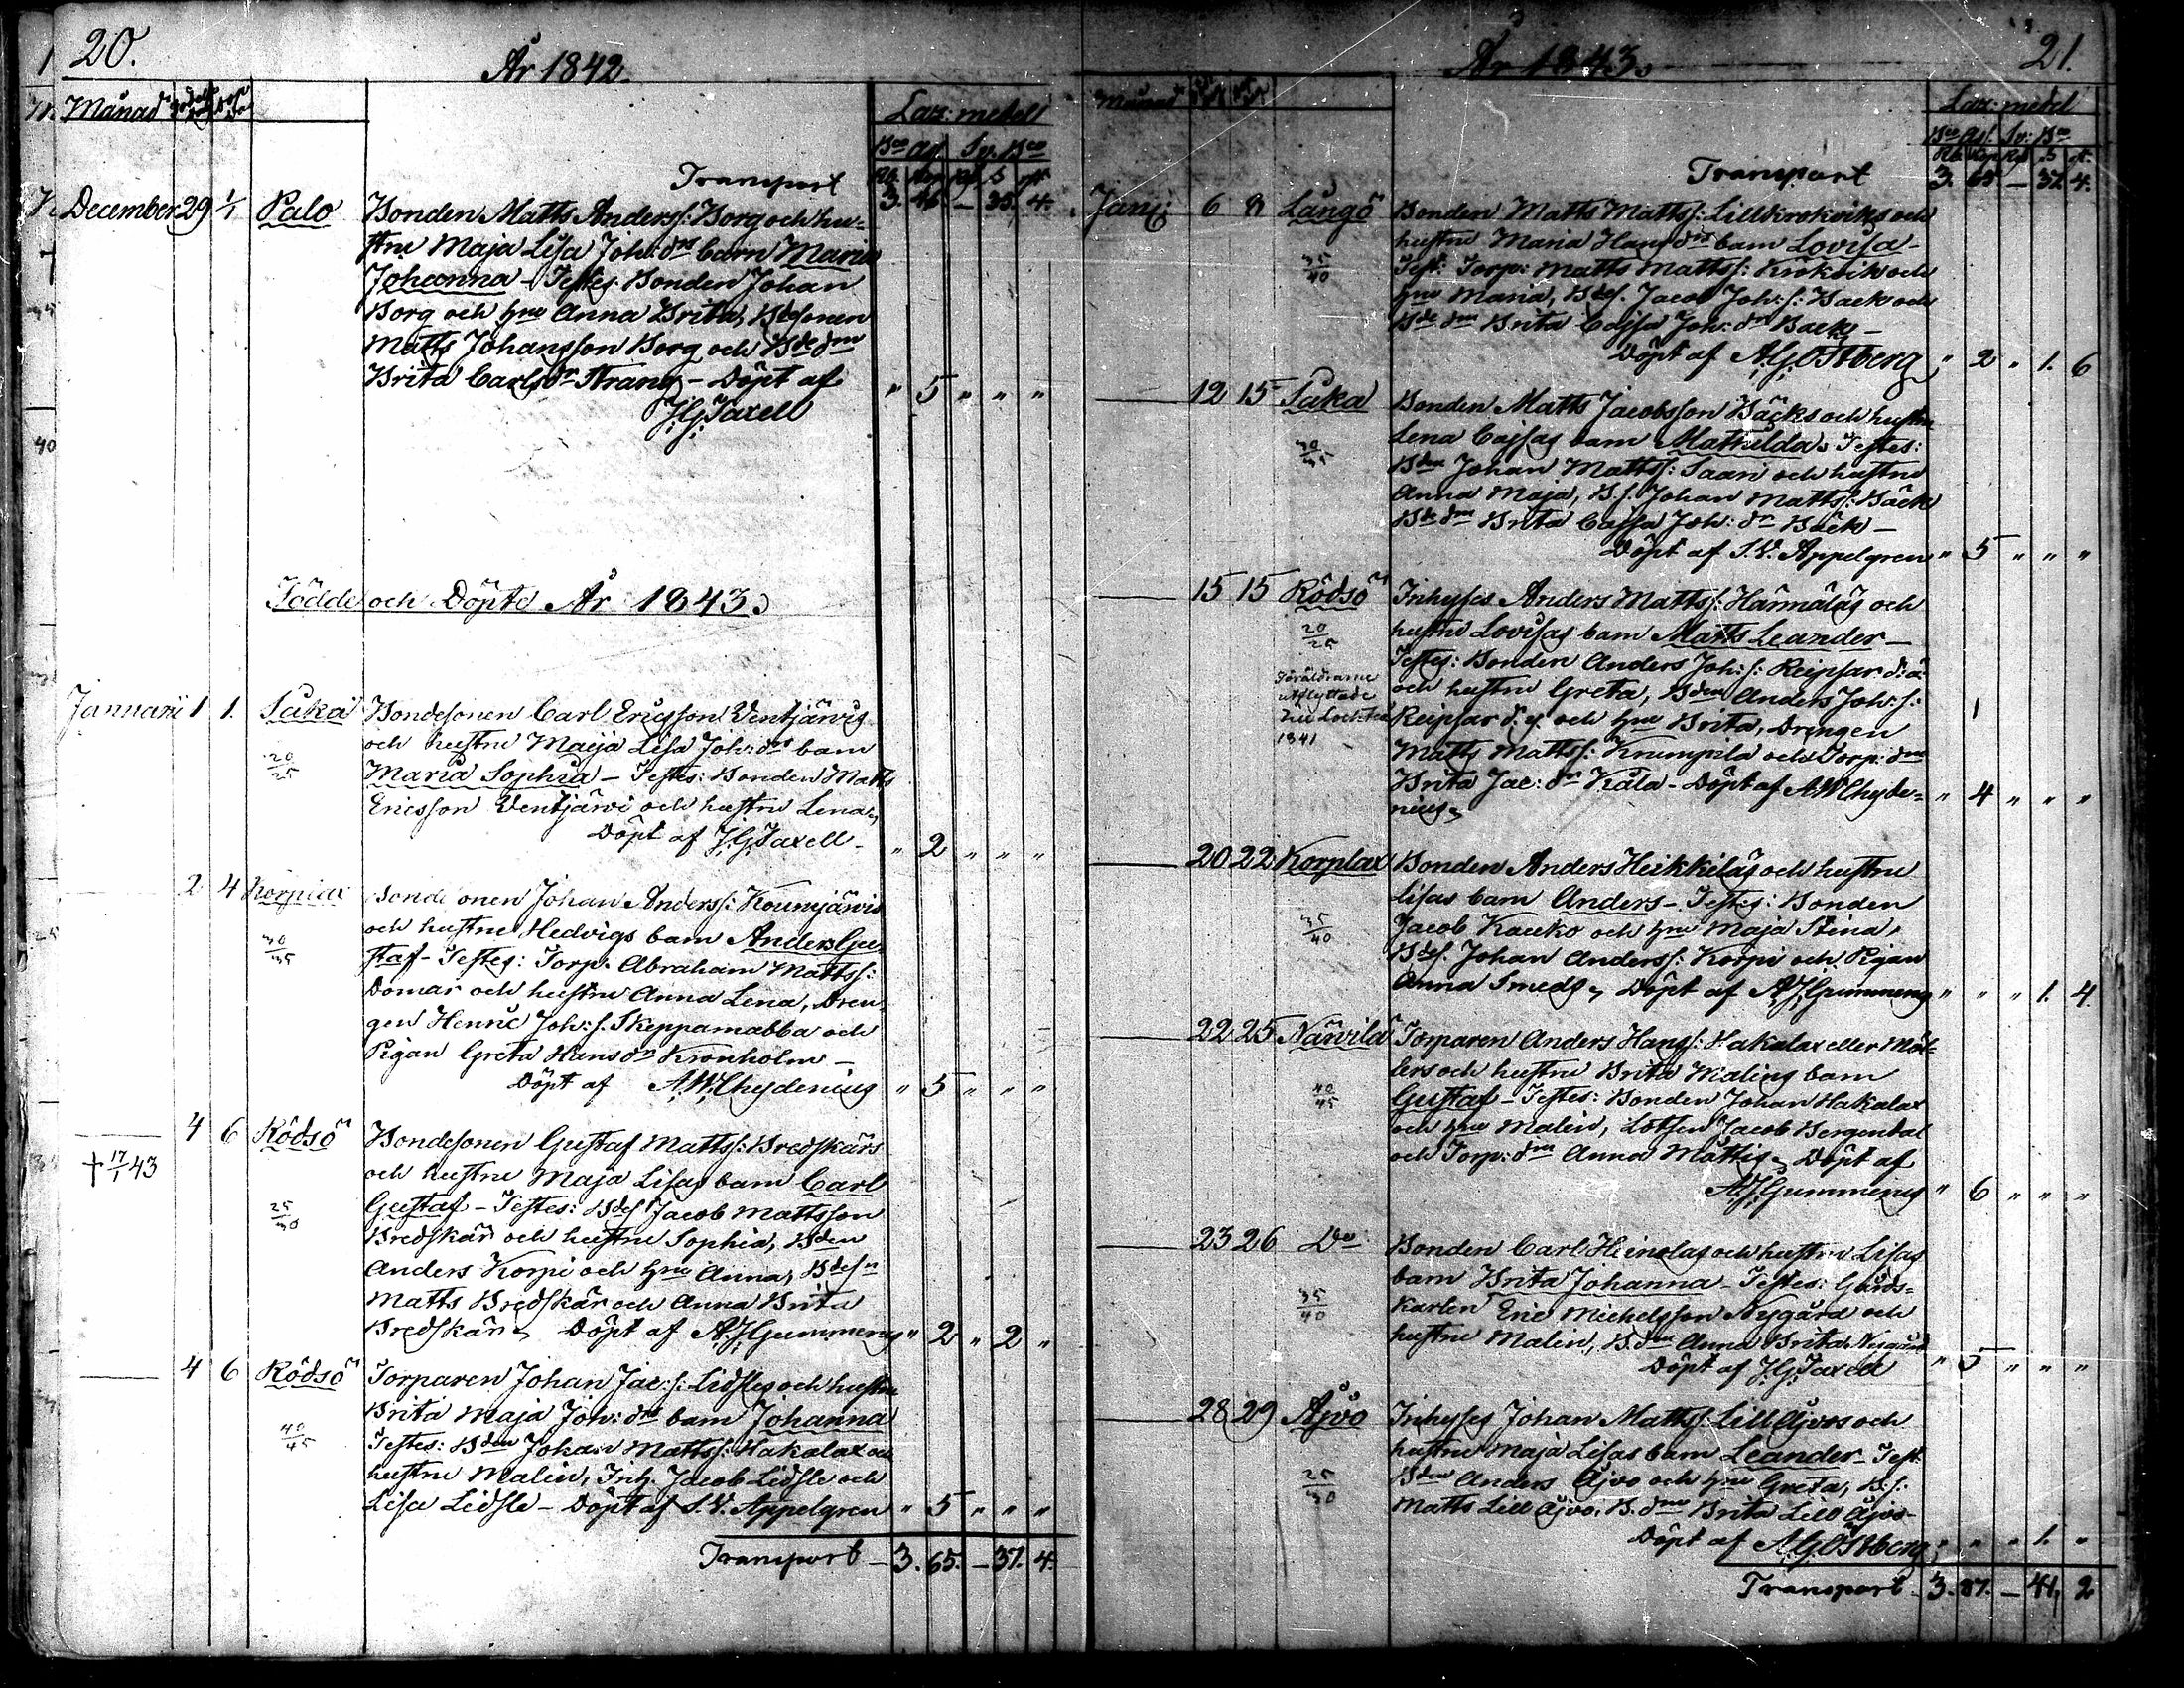 20.
År 1842.
Månad
Laz: medel
Bco Ass. Sv. Bco
Transport 3. 46 – 35. 4.
December 29 1/1 Palo
Bonden Matts Anderss: Borg och hu-
stru Maja Lisa Joh: drs barn Maria
Johanna – Testes: Bonden Johan
Borg och hru Anna Brita, Bdesonen
Matts Johansson Borg och Bde dm
Brita Carls dr Strang – Döpt af
J.G. Taxell " 5 " " "
Födde och Döpte År 1843.
Januarii 1 1. Såka
20/25
Bondesonen Carl Ericsson Ventjärvis
och hustru Maija Lisa Joh: drs barn
Maria Sophia – Testes: Bonden Matts
Ericsson Ventjärvi och hustru Lena,
Döpt af J.G. Taxell – " 2 " " "
2 4 Korplax
30/35
Bondesonen Johan Anderss: Kounjärvis
och hustru Hedvigs barn Anders Gu-
staf – Testes: Torp. Abraham Mattss:
Domar och hustru Anna Lena, Dren-
gen Henric Joh: s. Skeppamabba och
Pigan Greta Hans dr Kronholm –
Döpt af A.W. Chydenius " 5 " " "
4 6 Rödsö
† 17/1 43
25/30
Bondesonen Gustaf Mattss: Bredskärs
och hustru Maja Lisas barn Carl
Gustaf – Testes: Bdes Jacob Mattsson
Bredskär och hustru Sophia, Bden
Anders Korpi och hru Anna, Bdesn
Matts Bredskär och Anna Brita
Bredskär, Döpt af A.J. Gummerus " 2 " 2 "
4 6 Rödsö
40/45
Torparen Johan Jac: s: Lidsles och hustru
Brita Maja Joh: drs barn Johanna
Testes: Bden Johan Mattss: Hakalax och
hustru Malin, Inh. Jacob Lidsle och
Lisa Lidsle – Döpt af S.V. Appelgren " 5 " " "
Transport – 3. 65. – 37. 4.
21.
År 1843.
Månad
Laz: medel
Bco Ass. Sv: Bco
Transport 3. 65 – 37. 4.
Janij 6 8 Långö
35/40
Bonden Matts Mattss: Lillkrokviks och
hustru Maria Hans drs barn Lovisa –
Test: Torp: Matts Mattss: Krokvik och
hru Maria, Bdes. Jacob Joh: s: Back och
Bde dm Brita Cajsa Joh: dr Back, –
Döpt af A.G. Östberg " 2 " 1. 6
12 15 Såka
30/35
Bonden Matts Jacobsson Bäcks och hustru
Lena Cajsas barn Mathilda. Testes:
Bden Johan Mattss: Saari och hustru
Anna Maja, B.s. Johan Mattss: Bäck
Bde dm Brita Cajsa Joh: dr Bäck –
Döpt af S.V. Appelgren " 5 " " "
15 15 Rödsö
20/25
Föräldrarne
utflyttade
till Lochteå
1841
Inhyses Anders Mattss: Hannälas och
hustru Lovisas barn Matts Leander –
Testes: Bonden Anders Joh: s: Reipsar d: ä
och hustru Greta, Bden Anders Joh: s:
Reipsar d: y: och hru Brita, Drengen
Matts Mattss: Krumpila och Torp: dm
Brita Jac: dr Kåla – Döpt af A.W. Chyde-
nius, " 4 " " "
20 22 Korplax
35/40
Bonden Anders Heikkiläs och hustru
Lisas barn Anders – Testes: Bonden
Jacob Kauko och hru Maja Stina,
Bdes. Johan Anderss: Korpi och Pigan
Anna Smeds, Döpt af A.J. Gummerus " " " 1. 4.
22 25 Närvilä
40/45
Torparen Anders Hanss: Hakalax eller Mät-
ters och hustru Brita Malins barn
Gustaf – Testes: Bonden Johan Hakalax
och hru Malin, Lotsen Jacob Bergendal
och Torp: dm Anna Mattis, Döpt af
A.J. Gummerus " 6 " " "
23 26 Do
35/40
Bonden Carl Heinolas och hustru Lisas
barn Brita Johanna – Testes: Gårds-
karlen Eric Michelsson Nygård och
hustru Malin, B. dm Anna Brita Nygård
Döpt af J.G. Taxell " 5 " " "
28 29 Åjvo
25/30
Inhyses Johan Mattss: Lill Åjvos och
hustru Maja Lisas barn Leander – Test:
Bden Anders Åjvo och hru Greta, B.s.
Matts Lill Åjvo, B. dm Brita Lill Åjvo –
Döpt af A.G. Östberg " " " 1. "
Transport – 3. 87. – 41. 2